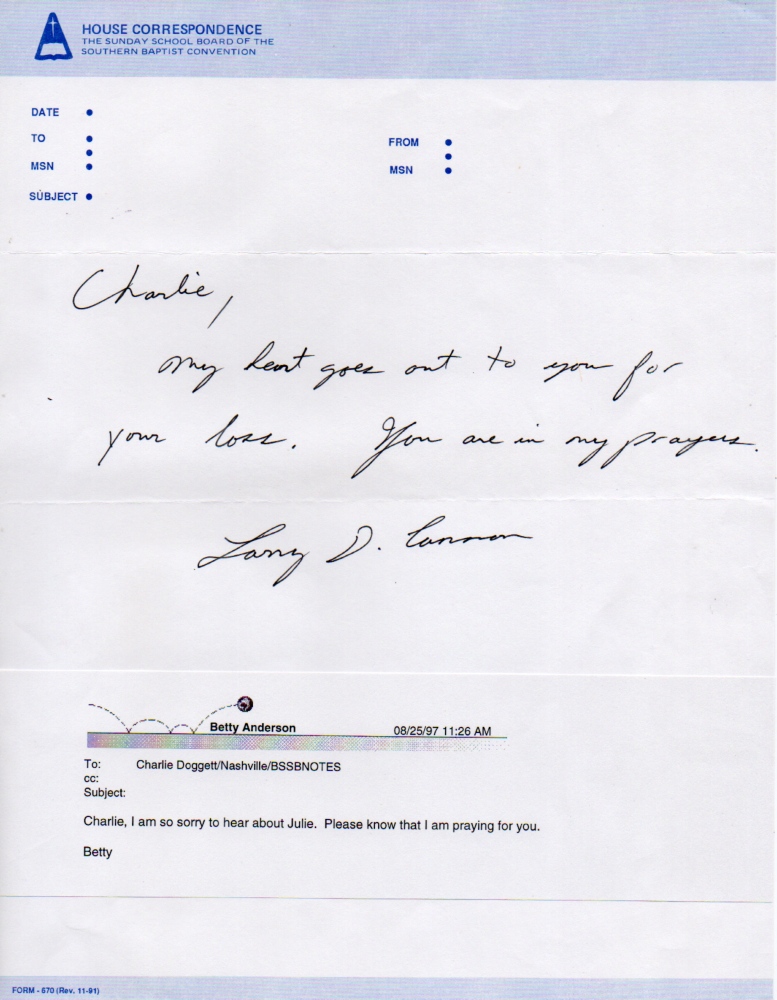 HOUSE CORRESPONDENCE
THE SUNDAY SCHOOL BOARD OF THE
SOUTHERN BAPTIST CONVENTION
DATE •
TO •
•
MSN •
SUBJECT •
FROM •
•
MSN •
Charlie,
My heart goes out to you for
your loss. You are in my prayers.
Larry D. Cannon
Betty Anderson 08/25/97 11:26 AM
To: Charlie Doggett/Nashville/BSSBNOTES
cc:
Subject:
Charlie, I am so sorry to hear about Julie. Please know that I am praying for you.
Betty
FORM - 670 (Rev. 11-91)